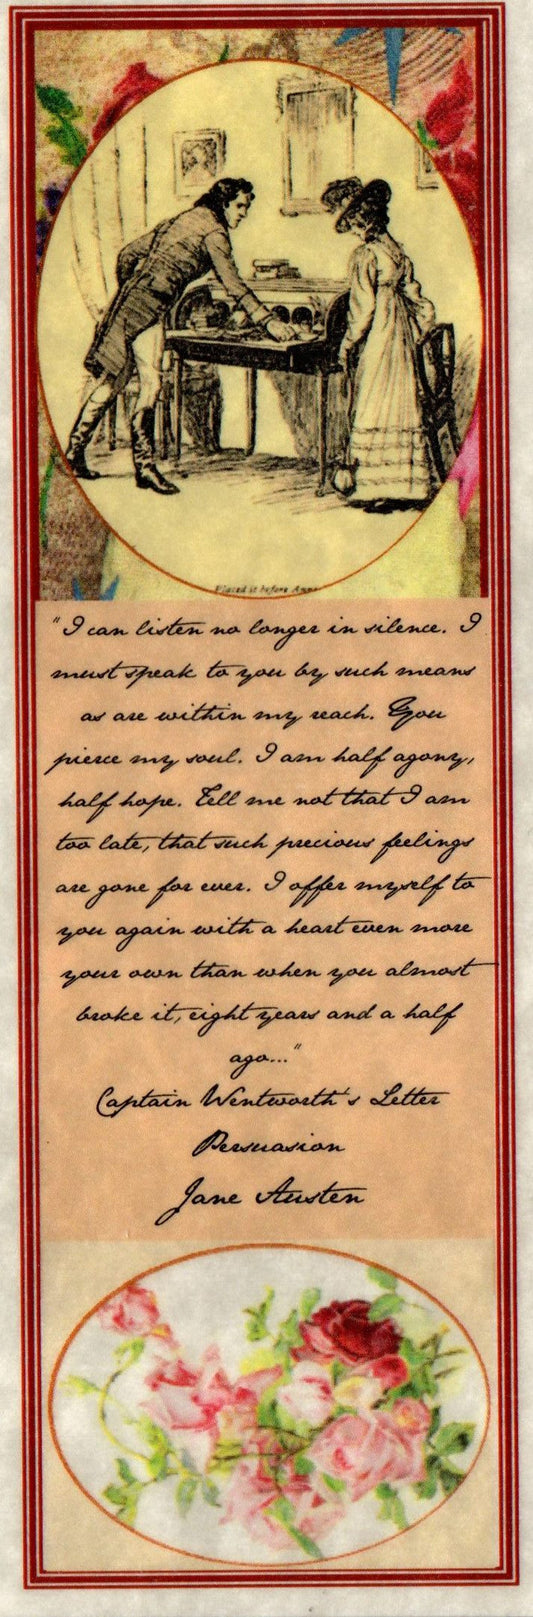 Placed it before Anne
"I can listen no longer in silence. I
must speak to you by such means
as are within my reach. You
pierce my soul. I am half agony,
half hope. Tell me not that I am
too late, that such precious feelings
are gone for ever. I offer myself to
you again with a heart even more
your own than when you almost
broke it, eight years and a half
ago..."
Captain Wentworth's Letter
Persuasion
Jane Austen